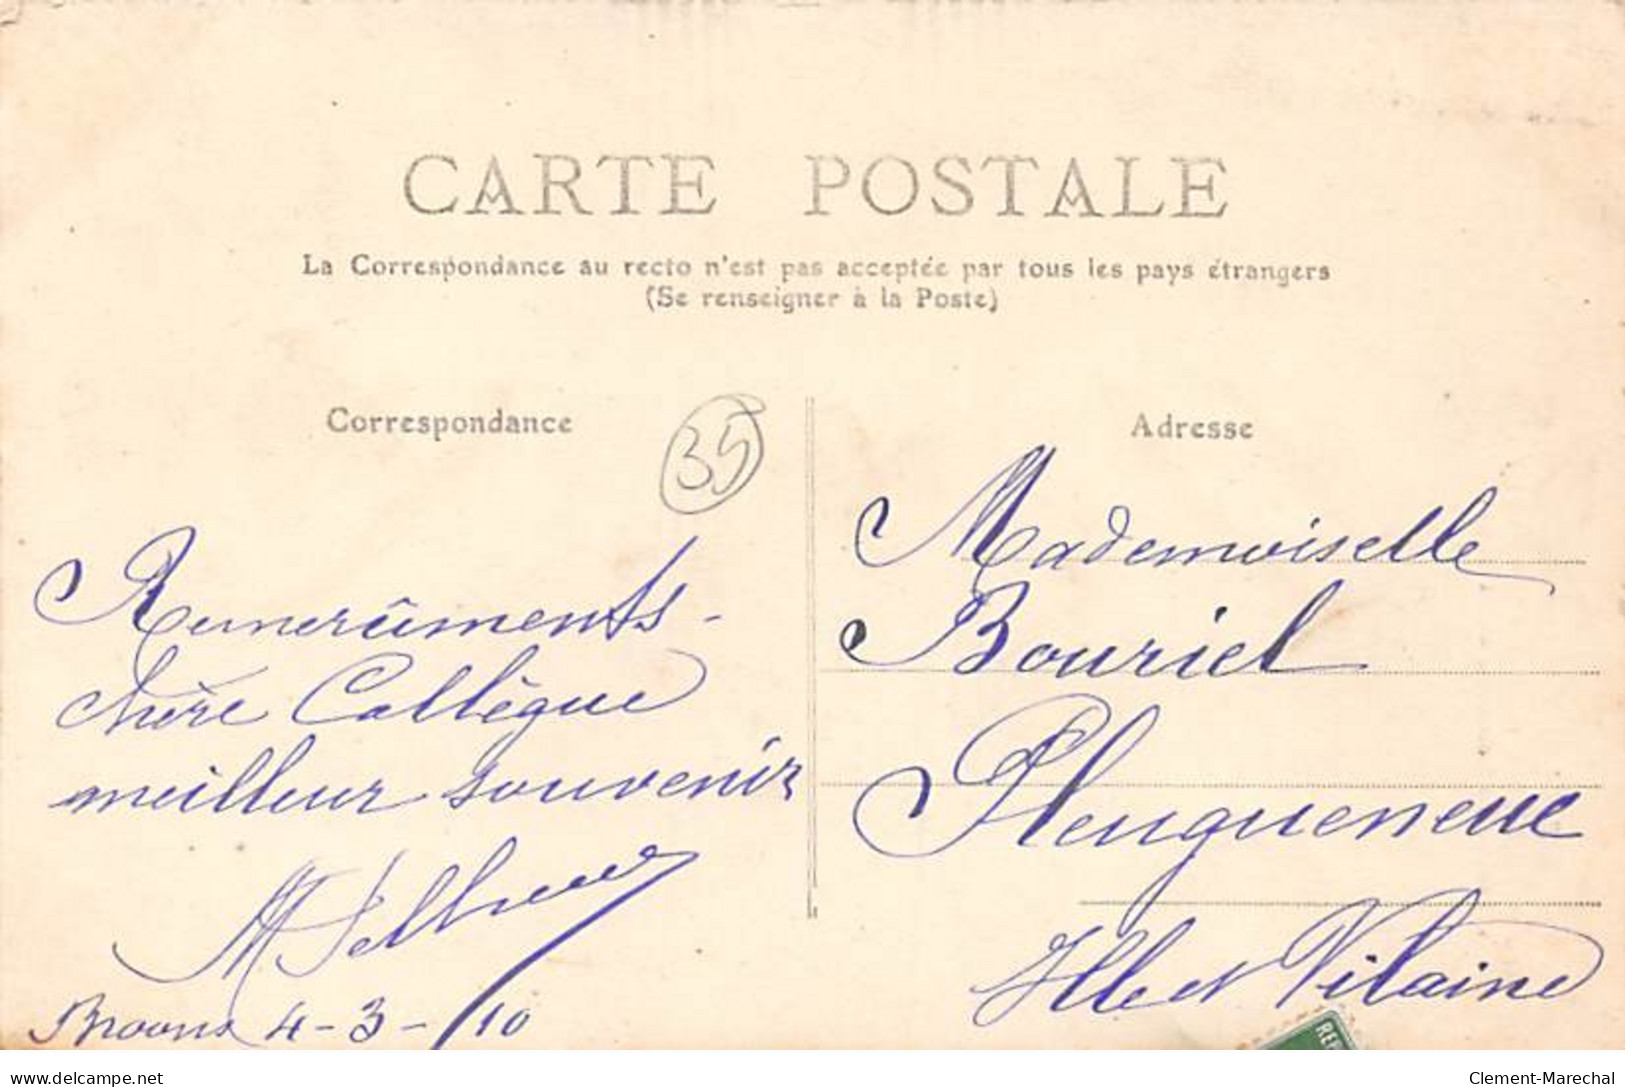 CARTE POSTALE
La Correspondance au recto n'est pas acceptée par tous les pays étrangers
(Se renseigner à la Poste)
Correspondance
35
Adresse
Remercîments -
chère Collègue
meilleur souvenir
Broons 4-3-10
Mademoiselle
Bouriel
Pleugueneuc
Ille et Vilaine
REP
www.delcampe.net
Clement-Marechal